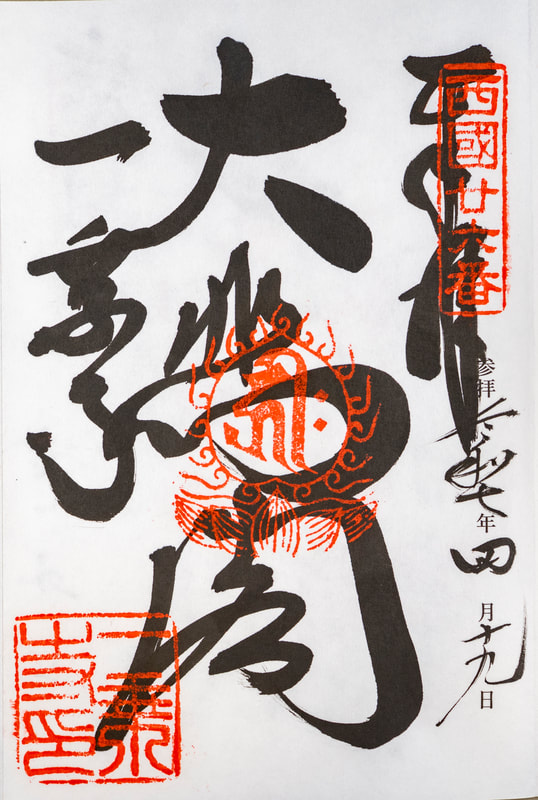 奉拝
西國廿六番
参拝 令和七年四月十九日
大悲閣
一乗寺
一乗寺印